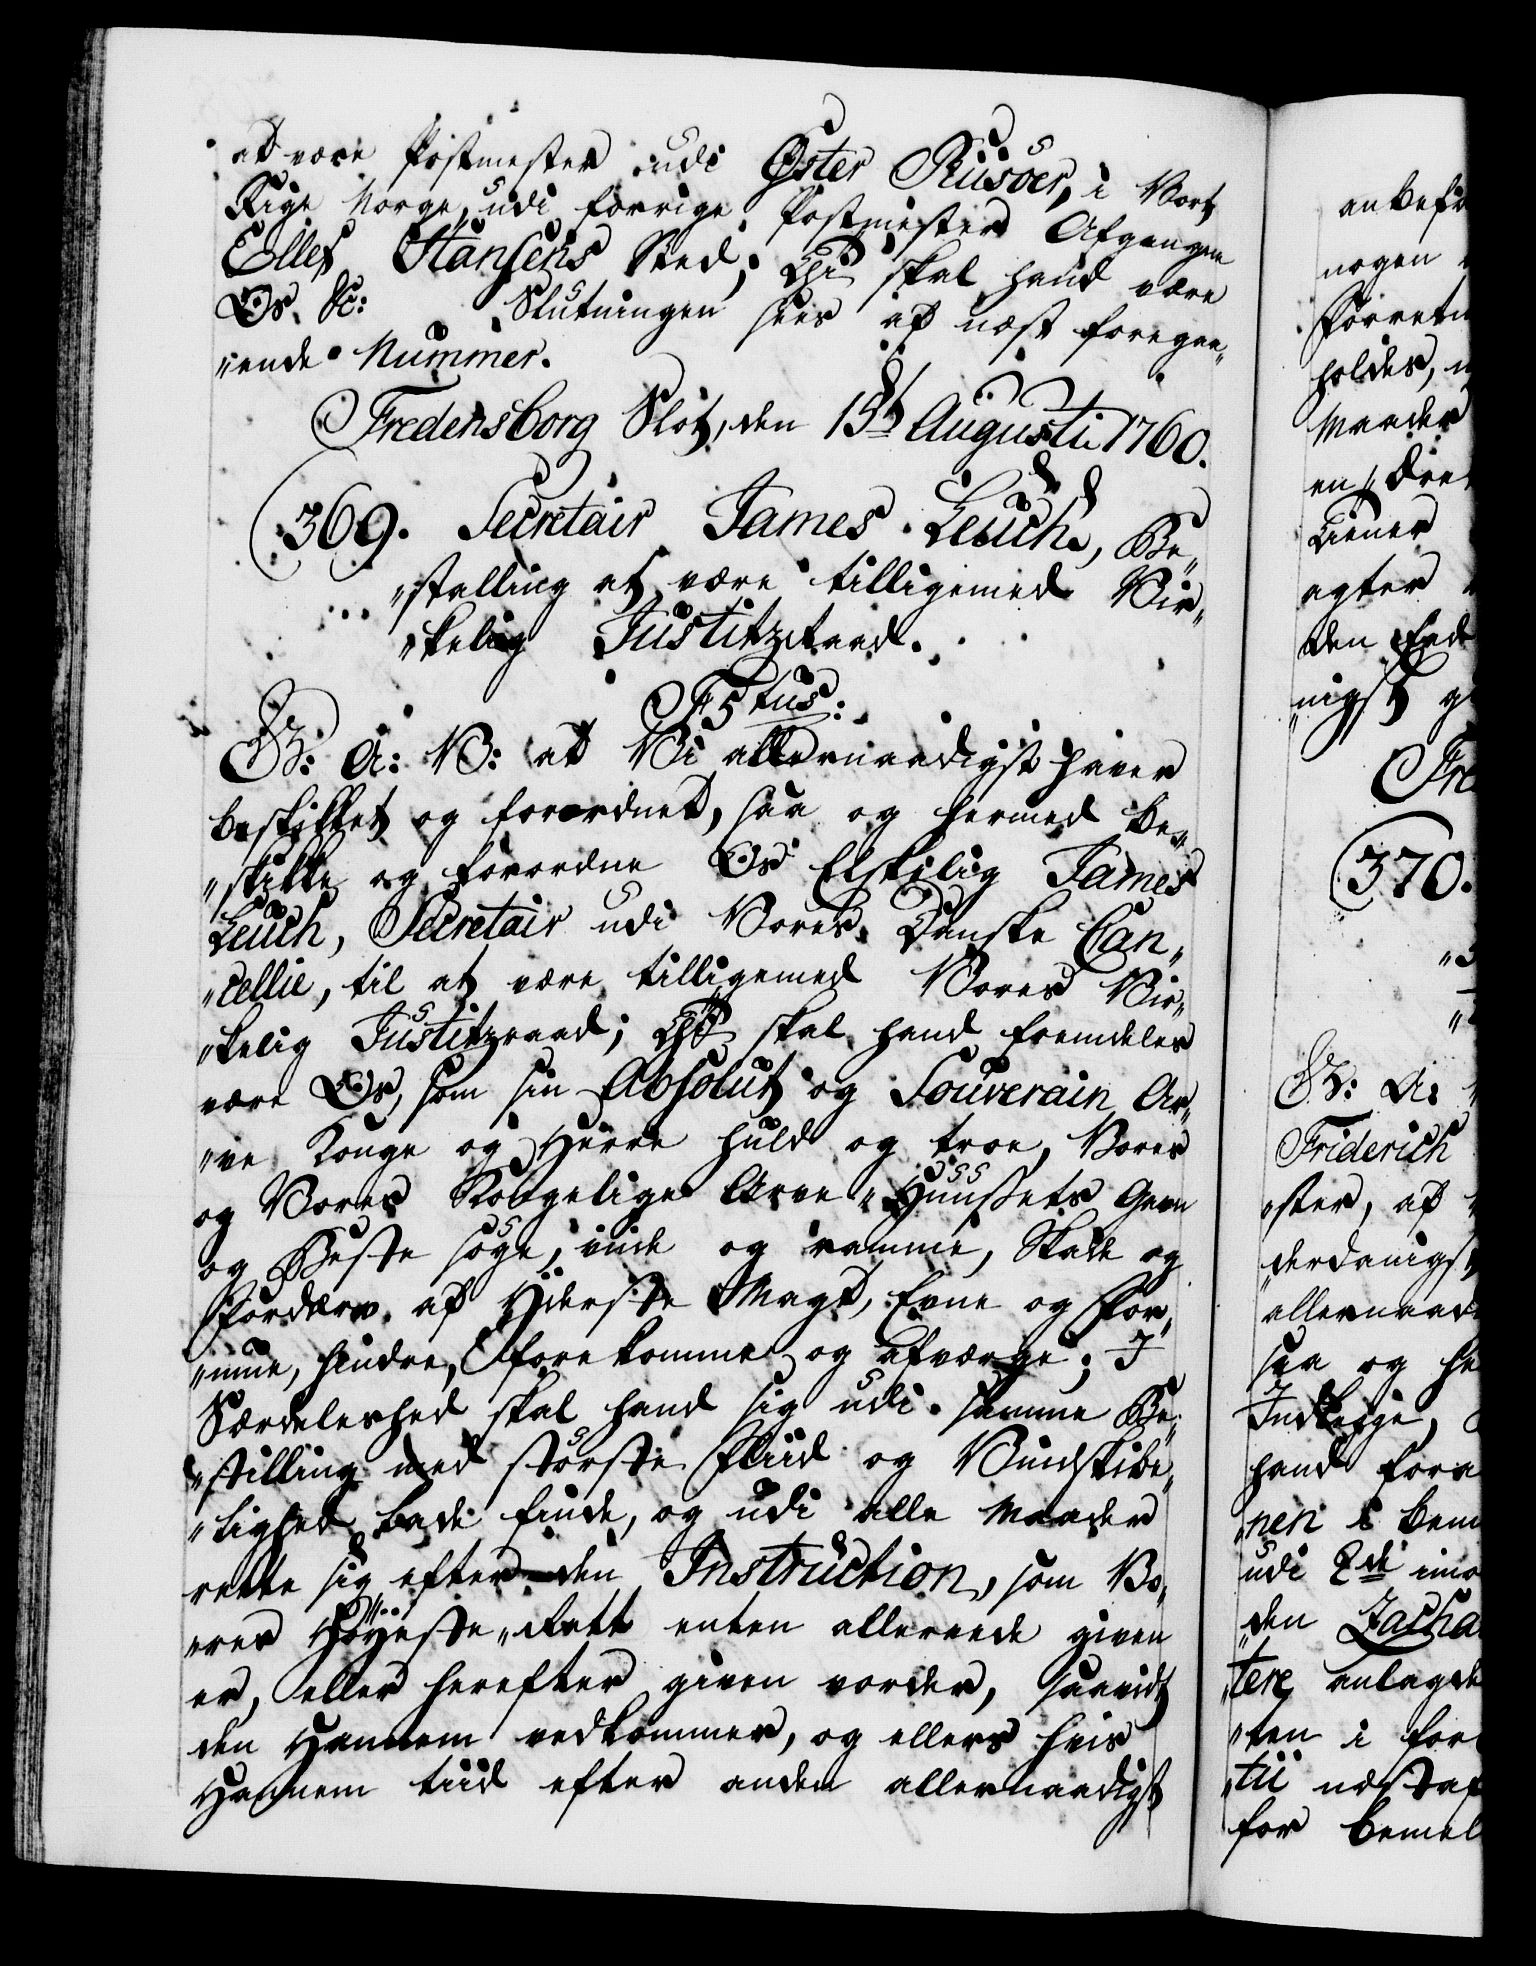 at være Postmester udi Øster Riisøer, i Vort
Rige Norge, udi forrige Postmester Afgangne
Elles Hansens Sted; Thi skal hand være
Os &c: Slutningen sees af næst foregaa„
„ende Nummer.
Fredensborg Slot, den 15t Augusti 1760.
369. Secretair James Leuch, Be„
„stalling at være tilligemed Vir„
„kelig Justitzraad.
F5tus:
G: A: V: at Vi allernaadigst haver
beskikket og forordnet, saa og hermed be„
„skikke og forordne Os Elskelig James
Leuch, Secretair udi Vores Danske Can„
„cellie, til at være tilligemed Vores Vir„
„kelig Justitzraad; Thi skal hand fremdeles
være Os, som sin Absolut og Souverain Ar„
„ve Konge og Herre huld og troe, Vores
og Vores Kongelige Arve„Huusets Gavn
og Beste søge, viide og ramme, Skade og
Fordærv af Yderste Magt, Evne og For„
„mue, hindre, forekomme og afværge; I
Særdeleshed skal hand sig udi samme Be„
„stilling med største Fliid og Vindskibe„
„lighed lade finde, og udi alle Maader
rette sig efter den Instruction, som Vo„
„res Høyeste„Rett enten allereede given
er, eller herefter given vorder, saavidt
den Hannem vedkommer, og ellers hvis
Hannem tiid efter anden allernaadigst
anbefa
nogen
Forretn
holdes, n
Maader
en
tiener
agter
den
nigst
Fre
370.
G: A:
Friderich
„ster, af
derdanigst
allernaad
saa og he
Indlegge,
hand fora
„nen i bem
udi 2de imo
den Zacha
„tere anlagde
„ten i for
„tii næstaf
for bemel